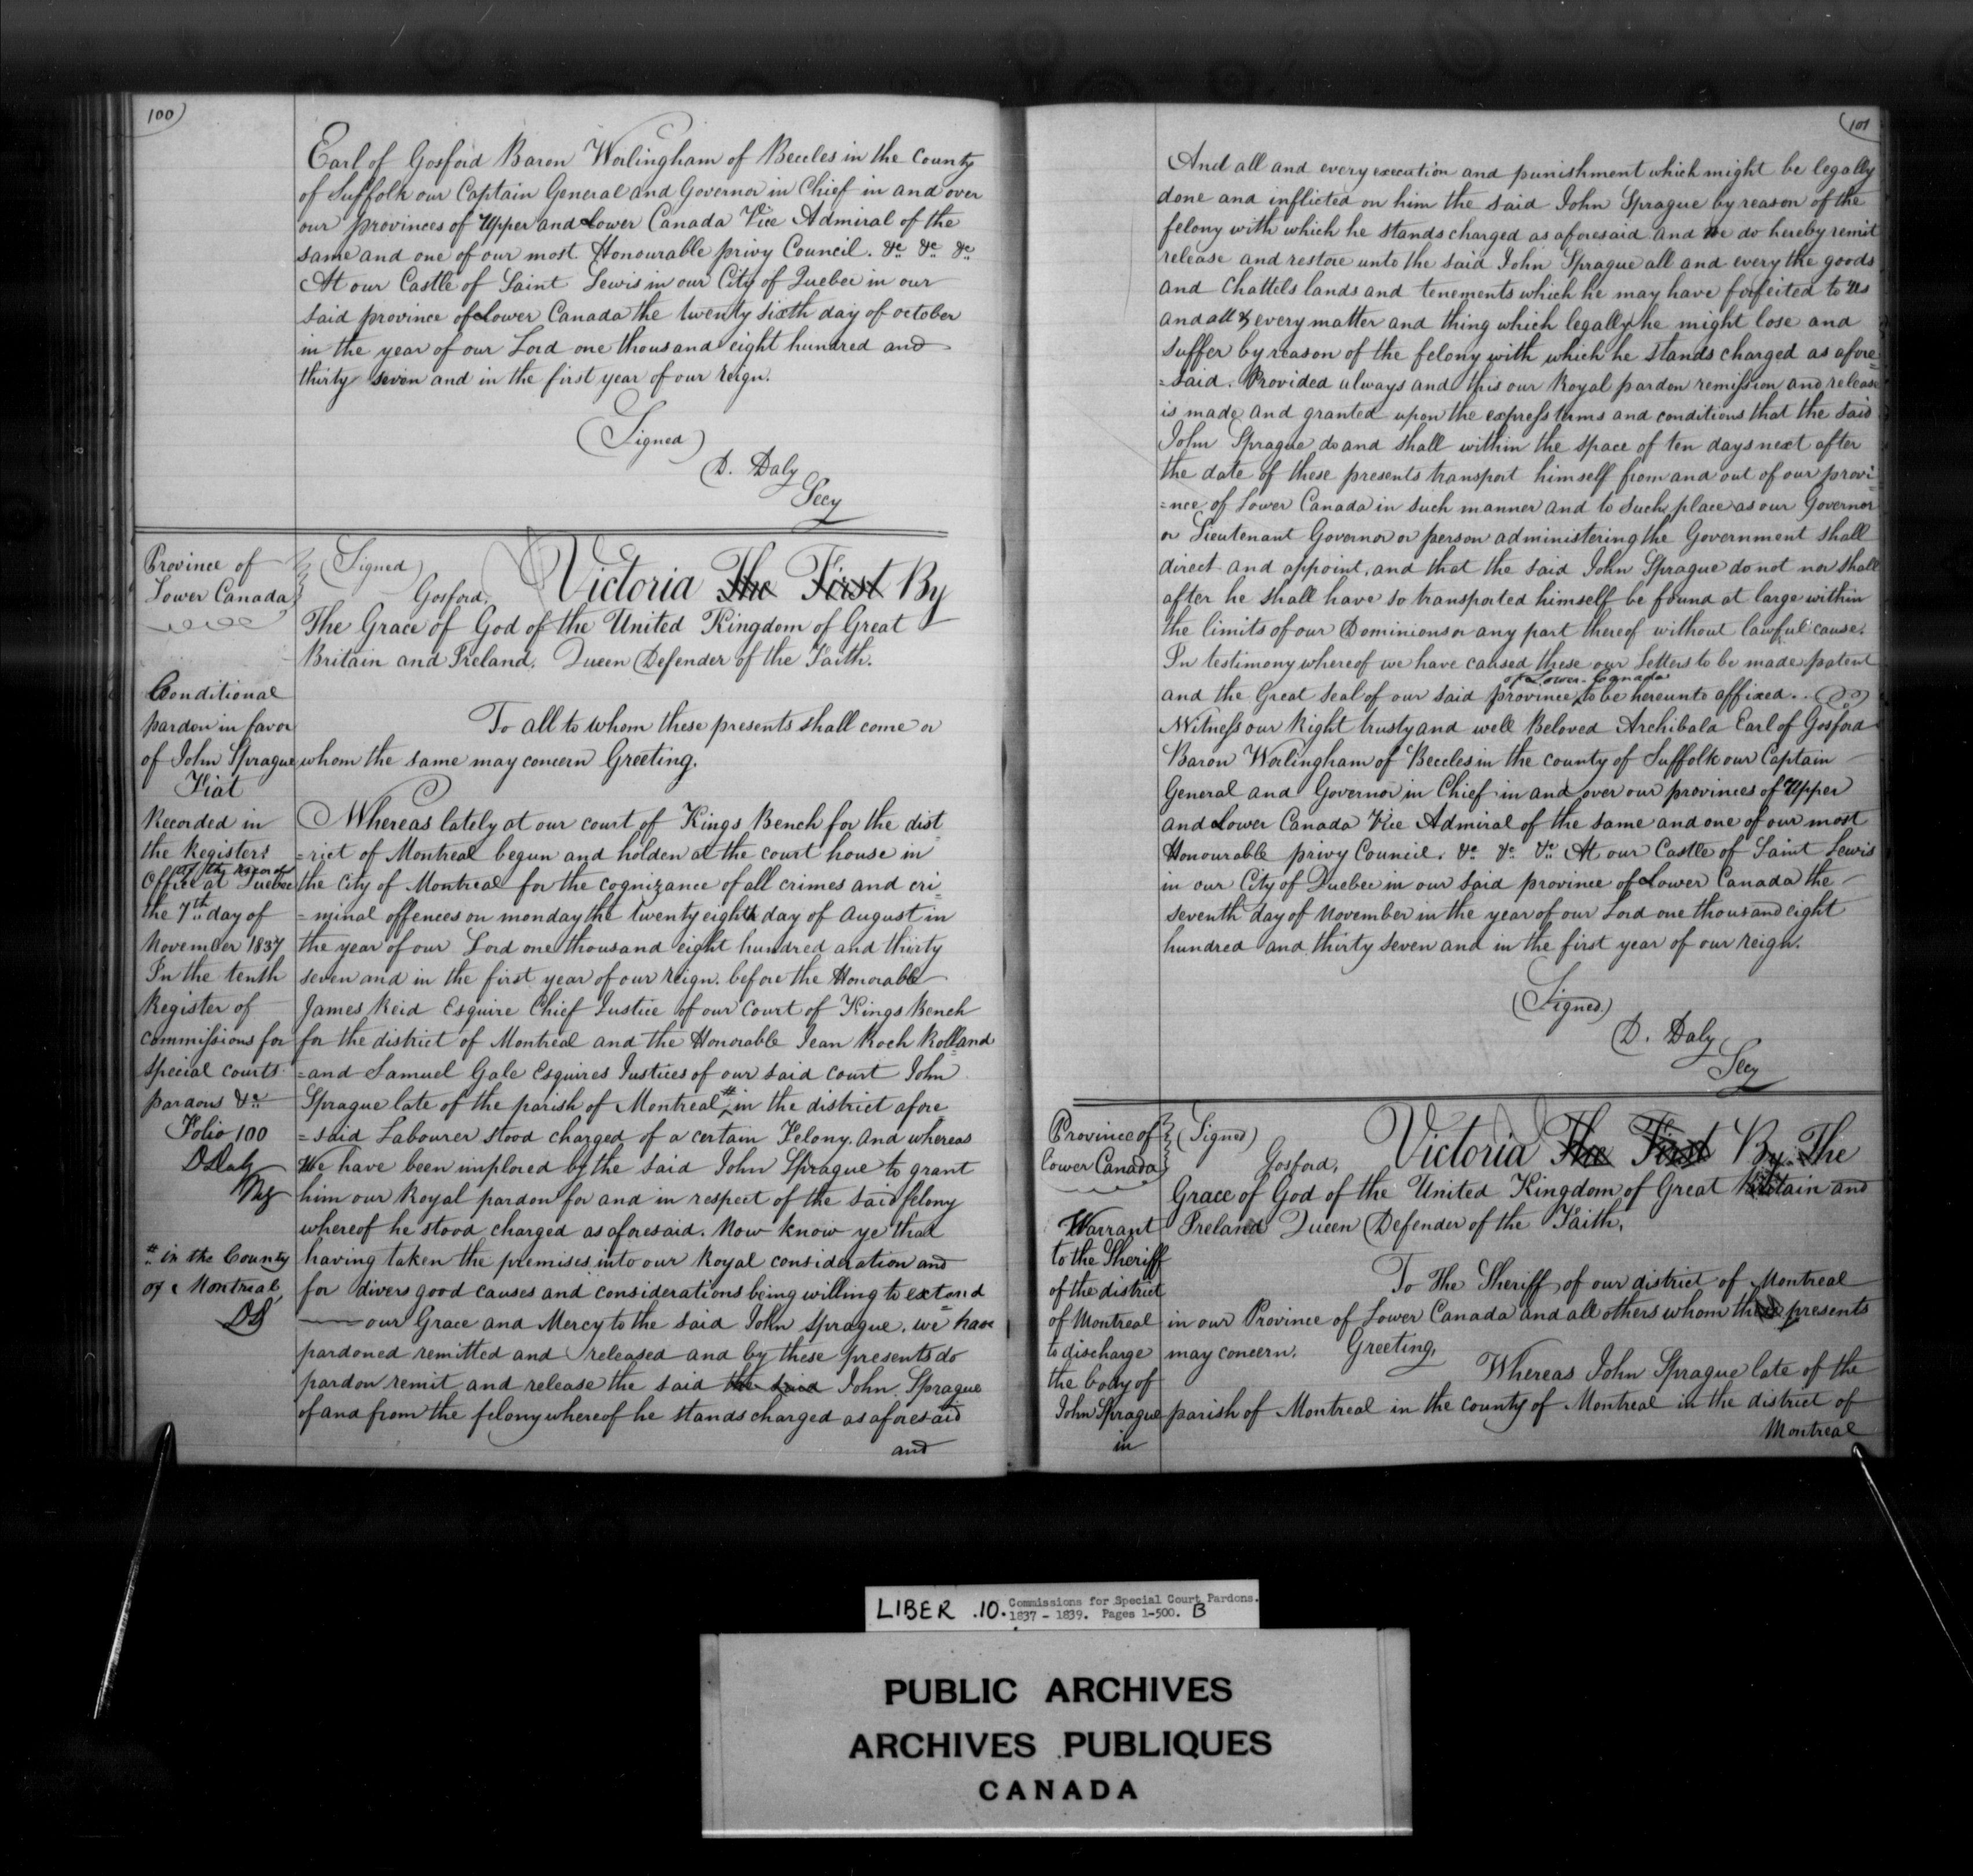 100
Earl of Gosford Baron Worlingham of Beccles in the County
of Suffolk our Captain General and Governor in Chief in and over
our provinces of Upper and Lower Canada Vice Admiral of the
same and one of our most Honourable privy Council. &c &c &c
At our Castle of Saint Lewis in our City of Quebec in our
said province of Lower Canada the twenty sixth day of october
in the year of our Lord one thousand eight hundred and
thirty seven and in the first year of our reign.
(Signed)
D. Daly
Secy
Province of
Lower Canada
Conditional
pardon in favor
of John Sprague
Fiat
Recorded in
the Registers
of the Records
Office at Quebec
the 7th day of
November 1837
In the tenth
Register of
commissions for
special courts
pardons &c
Folio 100
D Daly
Reg
# in the County
of Montreal
DD
(Signed)
Gosford,
Victoria The First By
The Grace of God of the United Kingdom of Great
Britain and Ireland. Queen Defender of the Faith.
To all to whom these presents shall come or
whom the same may concern Greeting.
Whereas lately at our court of Kings Bench for the dist
=rict of Montreal begun and holden at the court house in
the City of Montreal for the cognizance of all crimes and cri
=minal offences on monday the Twenty eighth day of August in
the year of our Lord one thousand eight hundred and thirty
seven and in the first year of our reign. before the Honorable
James Reid Esquire Chief Justice of our Court of Kings Bench
for the district of Montreal and the Honorable Jean Roch Rolland
=and Samuel Gale Esquires Justices of our said court John
Sprague late of the parish of Montreal # in the district afore
=said Labourer stood charged of a certain Felony. And whereas
We have been implored by the said John Sprague to grant
him our Royal pardon for and in respect of the said felony
whereof he stood charged as aforesaid. Now know ye that
having taken the premises into our Royal consideration and
for divers good causes and considerations being willing to extend
our Grace and Mercy to the said John Sprague. we have
pardoned remitted and released and by these presents do
pardon remit and release the said the said John Sprague
of and from the felony whereof he stands charged as aforesaid
and
101
And all and every execution and punishment which might be legally
done and inflicted on him the said John Sprague by reason of the
felony with which he stands charged as aforesaid and We do hereby remit
release and restore unto the said John Sprague all and every the goods
and Chattels lands and tenements which he may have forfeited to Us
and all & every matter and thing which legally he might lose and
suffer by reason of the felony with which he stands charged as afore
=said. Provided always and this our Royal pardon remission and release
is made and granted upon the express terms and conditions that the said
John Sprague do and shall within the space of ten days next after
the date of these presents transport himself from and out of our provi
=nce of Lower Canada in such manner and to such place as our Governor
or Lieutenant Governor or person administering the Government shall
direct and appoint, and that the said John Sprague do not nor shall
after he shall have so transported himself be found at large within
the limits of our Dominions or any part thereof without lawful cause.
In testimony whereof we have caused these our Letters to be made patent
of Lower Canada
and the Great Seal of our said province to be hereunto affixed..
Witness our Right trusty and well Beloved Archibald Earl of Gosford
Baron Worlingham of Beccles in the county of Suffolk our Captain
General and Governor in Chief in and over our provinces of Upper
and Lower Canada Vice Admiral of the same and one of our most
Honourable privy Council. &c &c &c At our Castle of Saint Lewis
in our City of Quebec in our said province of Lower Canada the
seventh day of November in the year of our Lord one thousand eight
hundred and thirty seven and in the first year of our reign.
(Signed)
D. Daly
Secy
Province of
Lower Canada
Warrant
to the Sheriff
of the district
of Montreal
to discharge
the body of
John Sprague
in
(Signed)
Gosford,
Victoria The First By The
Grace of God of the United Kingdom of Great Britain and
Ireland Queen Defender of the Faith.
To The Sheriff of our district of Montreal
in our Province of Lower Canada and all others whom these presents
may concern. Greeting,
Whereas John Sprague late of the
parish of Montreal in the county of Montreal in the district of
Montreal
LIBER .10. Commissions for Special Court Pardons.
1837 - 1839. Pages 1-500. B
PUBLIC ARCHIVES
ARCHIVES PUBLIQUES
CANADA